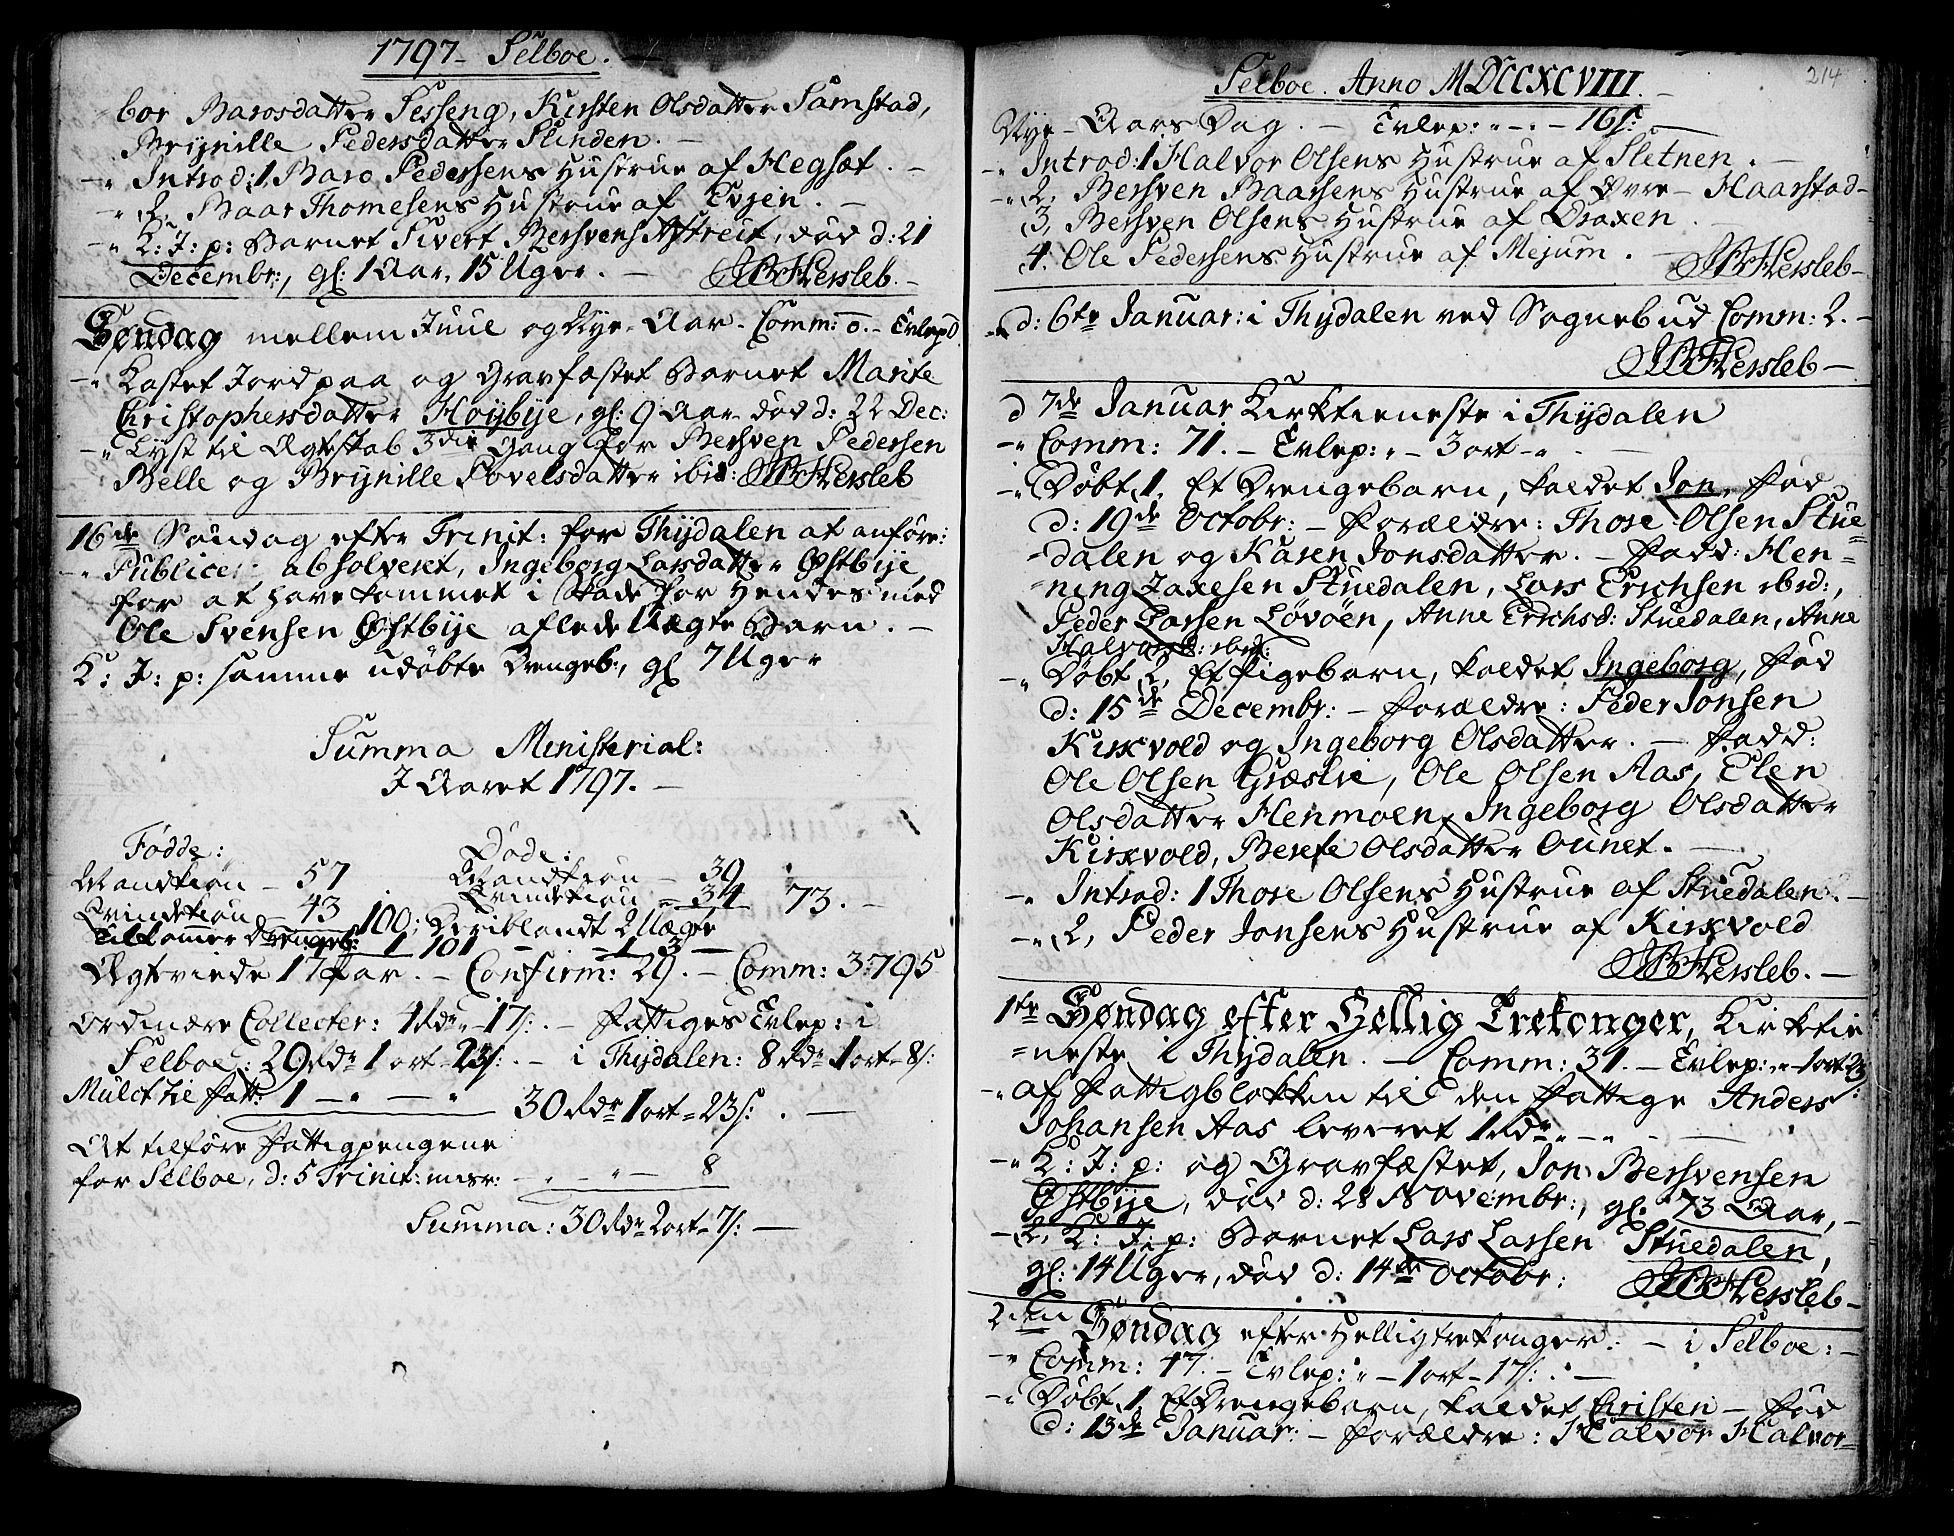 1797 - Selboe. -
bor Barosdatter Sesseng, Kirsten Olsdatter Samstad,
Brynille Pedersdatter Slinden. -
-" Introd: 1 Baro Pedersens Hustrue af Hegset. -
-" 2, Baar Thomesens Hustrue af Evjen. -
-" K: J: p: Barnet Sivert Bersvens Aftreit, død d: 21
Decembr:, gl: 1 Aar, 15 Uger. - JBHersleb. -
Søndag mellem Juul og Nye-Aar - Comm: 0. - Tvlep 0.
-" Kastet Jord paa og Gravfæstet Barnet Marite
Christophersdatter Høybye, gl: 9 Aar død d: 22 Dec:
-" Lyst til Ægteskab 3die Gang for Bersven Pedersen
Belle og Brynille Povelsdatter ibid: JBHersleb
16de Søndag efter Trinit: for Thydalen at anføre:
-" Publice: absolveret, Ingeborg Larsdatter Østbye
for at have kommet i Skade for Hendes med
Ole Svensen Østbye aflede Uægte Barn. -
K: J: p: samme udøbte Drengeb:, gl 7 Uger
Summa Ministerial:
I Aaret 1797. -
Fødde: Døde:
Mandkiøn - 57 Mandkiøn - 39
Qvindekiøn - 43 Qvindekiøn - 34 73. -
100; Deriblandt 2 Uægte
Tilkommer Drengeb: 1 101 - - 1 3 -
Ægtviede 17 Par. - Confirm: 29. - Comm: 3795
Ordinære Collecter: 4 Rdr " 17 s:. - Fattiges Tvlep: i
Selboe: 29 Rdr 1 ort - 23 s:. - i Thydalen: 8 Rdr 1 ort - 8 s:
Mulct til Fatt: 1 - " - " 30 Rdr 1 ort = 23 s:. -
At tilføre Fattigpengene
for Selboe, d: 5 Trinit: - " - " - 8
Summa: 30 Rdr 2 ort - 7 s: -
214
Selboe. Anno MDCCXCVIII. -
Nye-Aars Dag. - Tvlep: " - " - 16 s: -
-" Introd: 1 Halvor Olsens Hustrue af Sletnen. -
-" 2, Bersven Baarsens Hustrue af Øvre - Haarstad -
3, Bersven Olsens Hustrue af Draxen. -
4. Ole Pedersens Hustrue af Mejum. - JBHersleb -
-" d: 6te Januar: i Thydalen ved Sognebud Comm: 2. -
JBHersleb -
d 7de Januar Kirktieneste i Thydalen
-" Comm: 71. - Tvlep: " - 3 ort - " -
-" Døbt 1, Et Drengebarn, kaldet Jon, Fød
d: 19de Octobr: - Forældre: Thore Olsen Stue=
=dalen og Karen Jonsdatter. - Fadd: Hen=
=ning Zaxesen Stuedalen, Lars Erichsen ibid:,
Peder Larsen Løvøen, Anne Erichsd: Stuedalen, Anne
Halvorsd: ibid:
-" Døbt 2, Et Pigebarn, kaldet Ingeborg, Fød
d: 15de Decembr: - Forældre: Peder Jonsen
Kirkvold og Ingeborg Olsdatter. - Fadd:
Ole Olsen Græslie, Ole Olsen Aas, Elen
Olsdatter Henmoen, Ingeborg Olsdatter
Kirkvold, Berete Olsdatter Ounet. -
-" Introd: 1 Thore Olsens Hustrue af Stuedalen. -
-" 2, Peder Jonsens Hustrue af Kirkvold
JBHersleb. -
1te Søndag efter Hellig Trekonger, Kirktie
=neste i Thydalen. - Comm: 31. - Tvlep: " - 1 ort 23 s:
-" af Fattigblokken til den Fattige Anders
Johansen Aas leveret 1 Rdr " - " - -
-" K: J: p: og Gravfæstet, Jon Bersvensen
Østbye, død d: 28 Novembr:, gl: 73 Aar, -
-" 2, K: J: p: Barnet Lars Larsen Stuedalen,
gl: 14 Uger, død d: 14de Octobr: JBHersleb -
2den Søndag efter Helligtrekonger. - i Selboe: -
-" Comm: 17. - Tvlep: " - 1 ort - 17 s: . -
-" Døbt 1, Et Drengebarn, kaldet Christen - Fød
d: 13de Januar: - Forældre: Halvor Halvor=